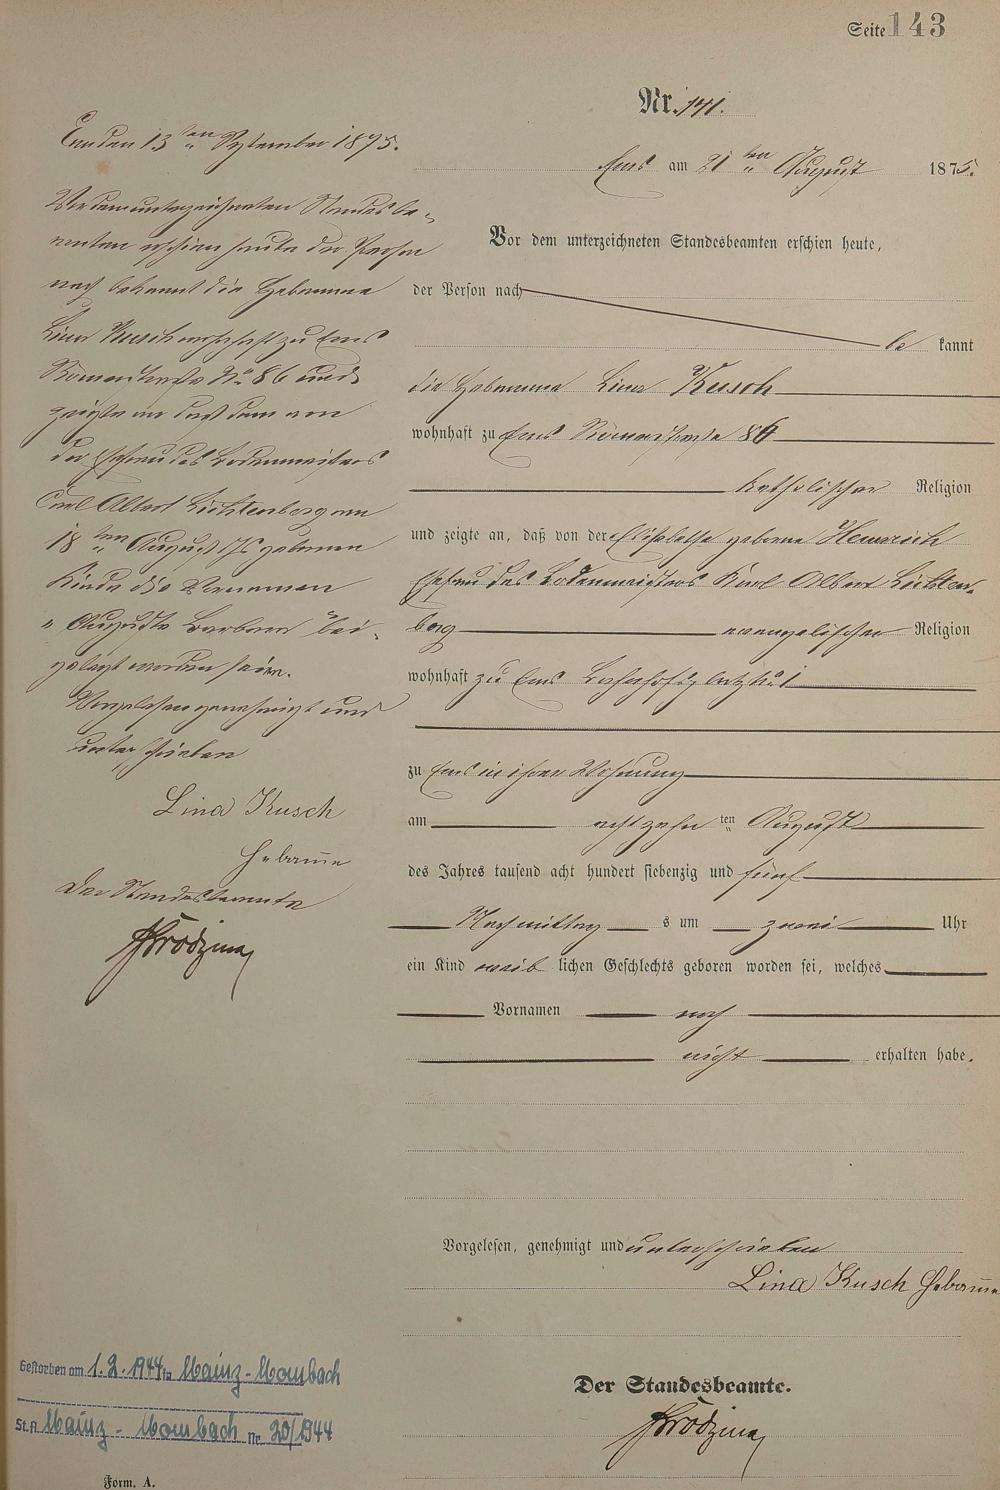 Seite 143
Nr. 141.
Ems am 21ten August 1875.
Vor dem unterzeichneten Standesbeamten erschien heute,
der Person nach
be kannt
die Hebamme Lina Kusch
wohnhaft zu Ems Römerstraße 86
katholischer Religion
und zeigte an, daß von der Elisabetha geborne Hennrich
Ehefrau des Bodenmeisters Karl Albert Lichten-
berg evangelischer Religion
wohnhaft zu Ems Bahnhofsplatz No 1
zu Ems in ihrer Wohnung
am achtzehn ten August
des Jahres tausend acht hundert siebenzig und fünf
Nachmittag s um zwei Uhr
ein Kind weib lichen Geschlechts geboren worden sei, welches
Vornamen noch
nicht erhalten habe.
Vorgelesen, genehmigt und unterschrieben
Lina Kusch Hebamme
Der Standesbeamte.
Ems den 13ten September 1875.
Vor dem unterzeichneten Standesbe-
amten erschien heute der Person
nach bekannt die Hebamme
Lina Kusch wohnhaft zu Ems
Römerstraße No 86 und
zeigte an daß dem von
der Ehefrau des Bodenmeisters
Carl Albert Lichtenberg am
18ten August 75 geborenen
Kinde die Vornamen
"Auguste Barbara" bei-
gelegt worden seien.
Vorgelesen genehmigt und
unterschrieben
Lina Kusch
Hebamme
Der Standesbeamte
Gestorben am 1.2.1944 in Mainz-Mombach
St.A. Mainz-Mombach Nr. 20/1944
Form. A.